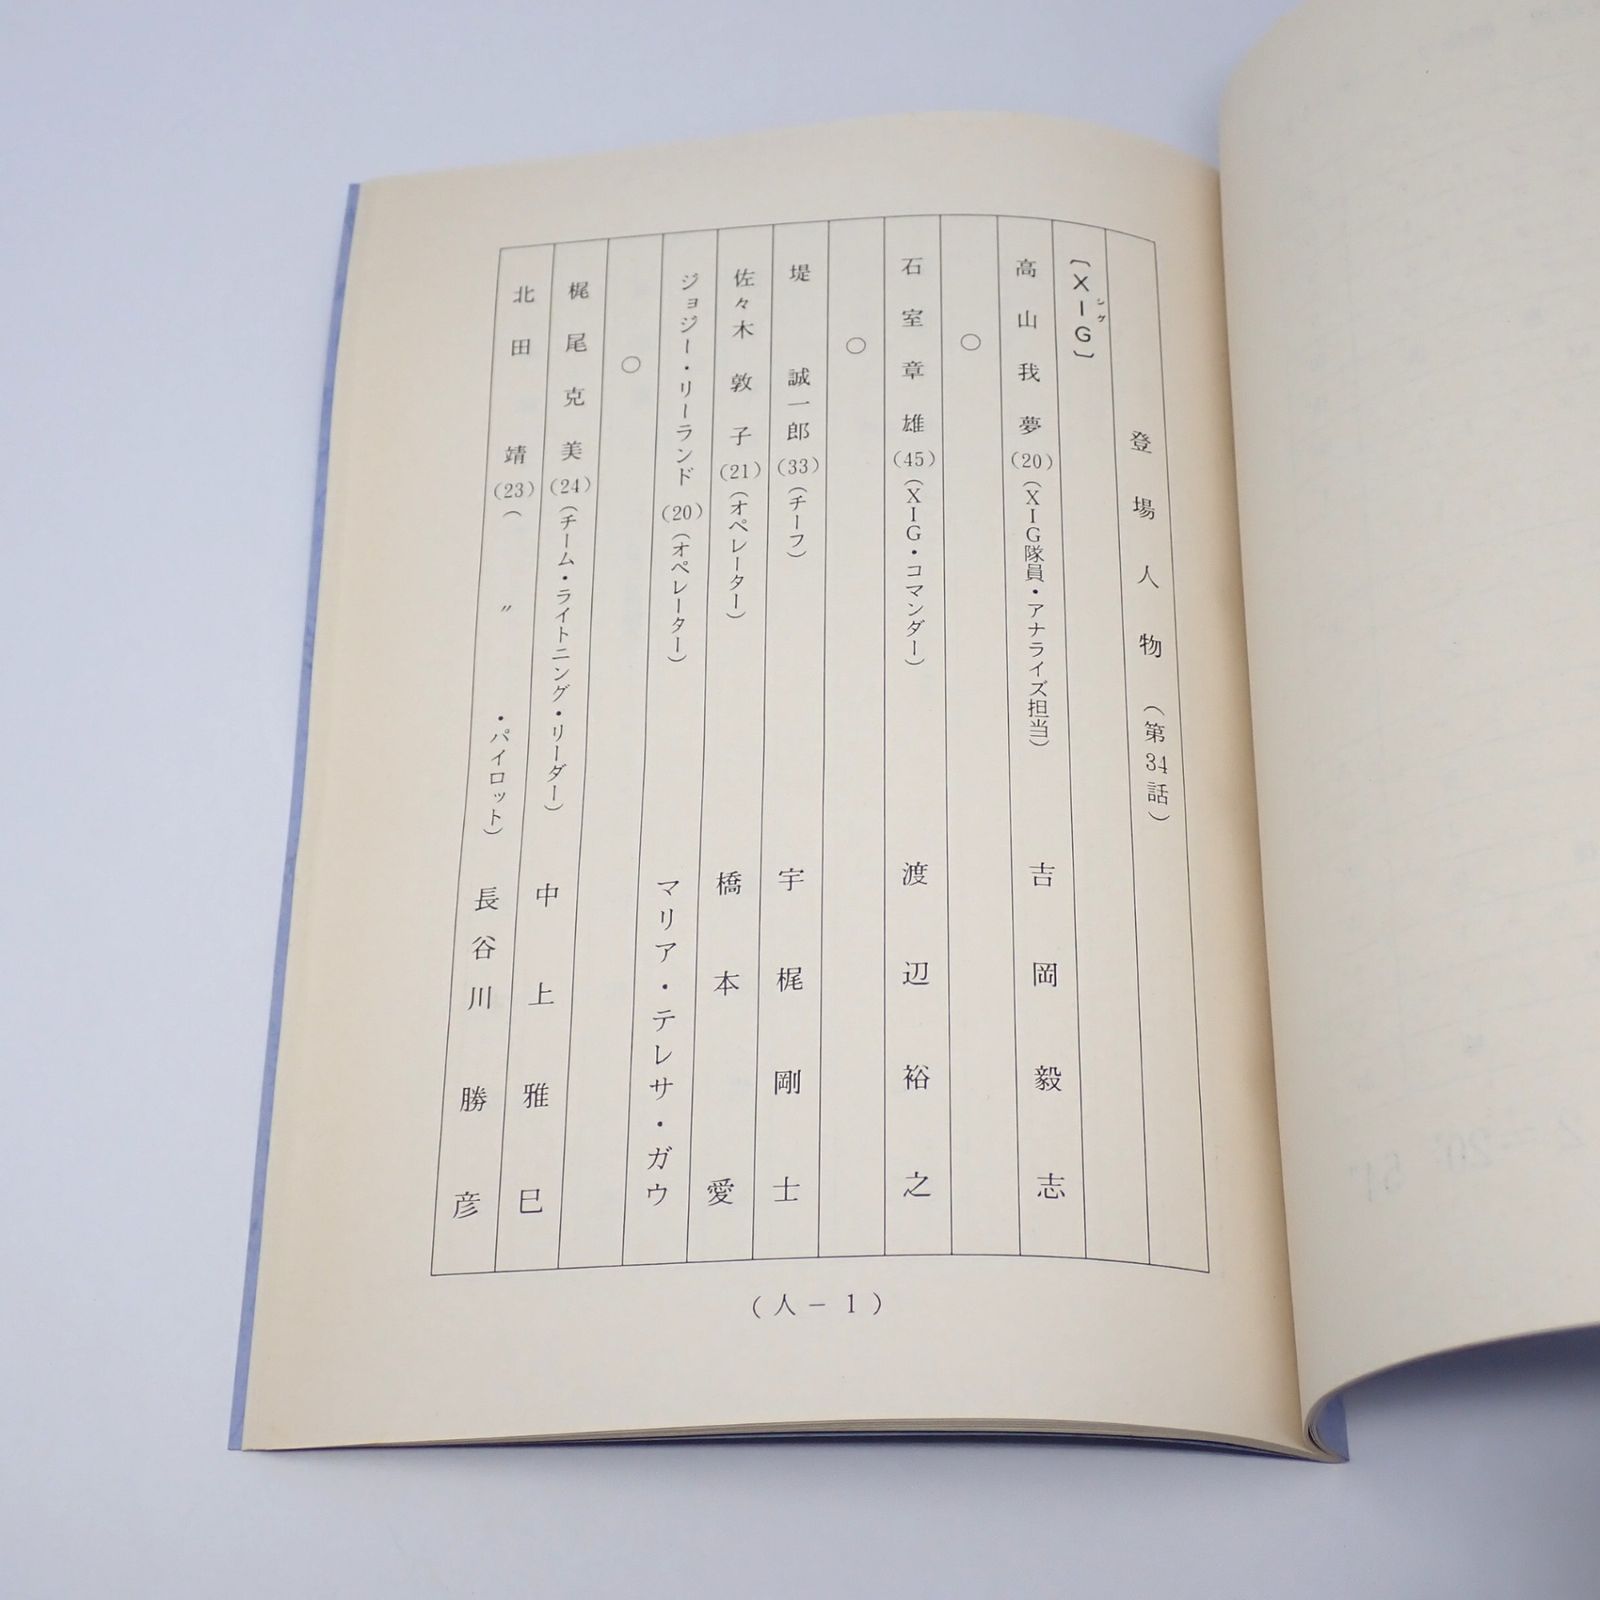 登場人物（第34話）
〔XIG〕
シグ
高山我夢（20）（XIG隊員・アナライズ担当） 吉岡毅志
○
石室章雄（45）（XIG・コマンダー） 渡辺裕之
○
堤 誠一郎（33）（チーフ） 宇梶剛士
佐々木敦子（21）（オペレーター） 橋本愛
ジョジー・リーランド（20）（オペレーター） マリア・テレサ・ガウ
○
梶尾克美（24）（チーム・ライトニング・リーダー） 中上雅巳
北田 靖（23）（ 〃 ・パイロット） 長谷川勝彦
（人－1）